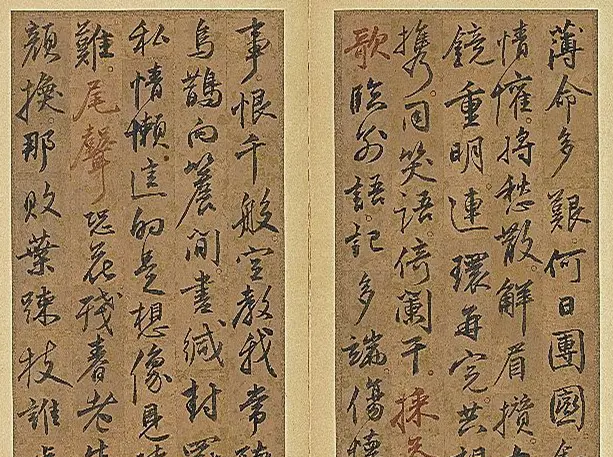 薄命多艱何日團圓
情懽將愁散解眉攢
鏡重明連環再完共
携同笑語倚闌干採
歌臨別語記多端傷懷
事恨千般空教我常
烏鵲向簷間書緘封
私情懶這的是想像見
難尾聲恐花殘春老
顔換那敗葉踈枝誰